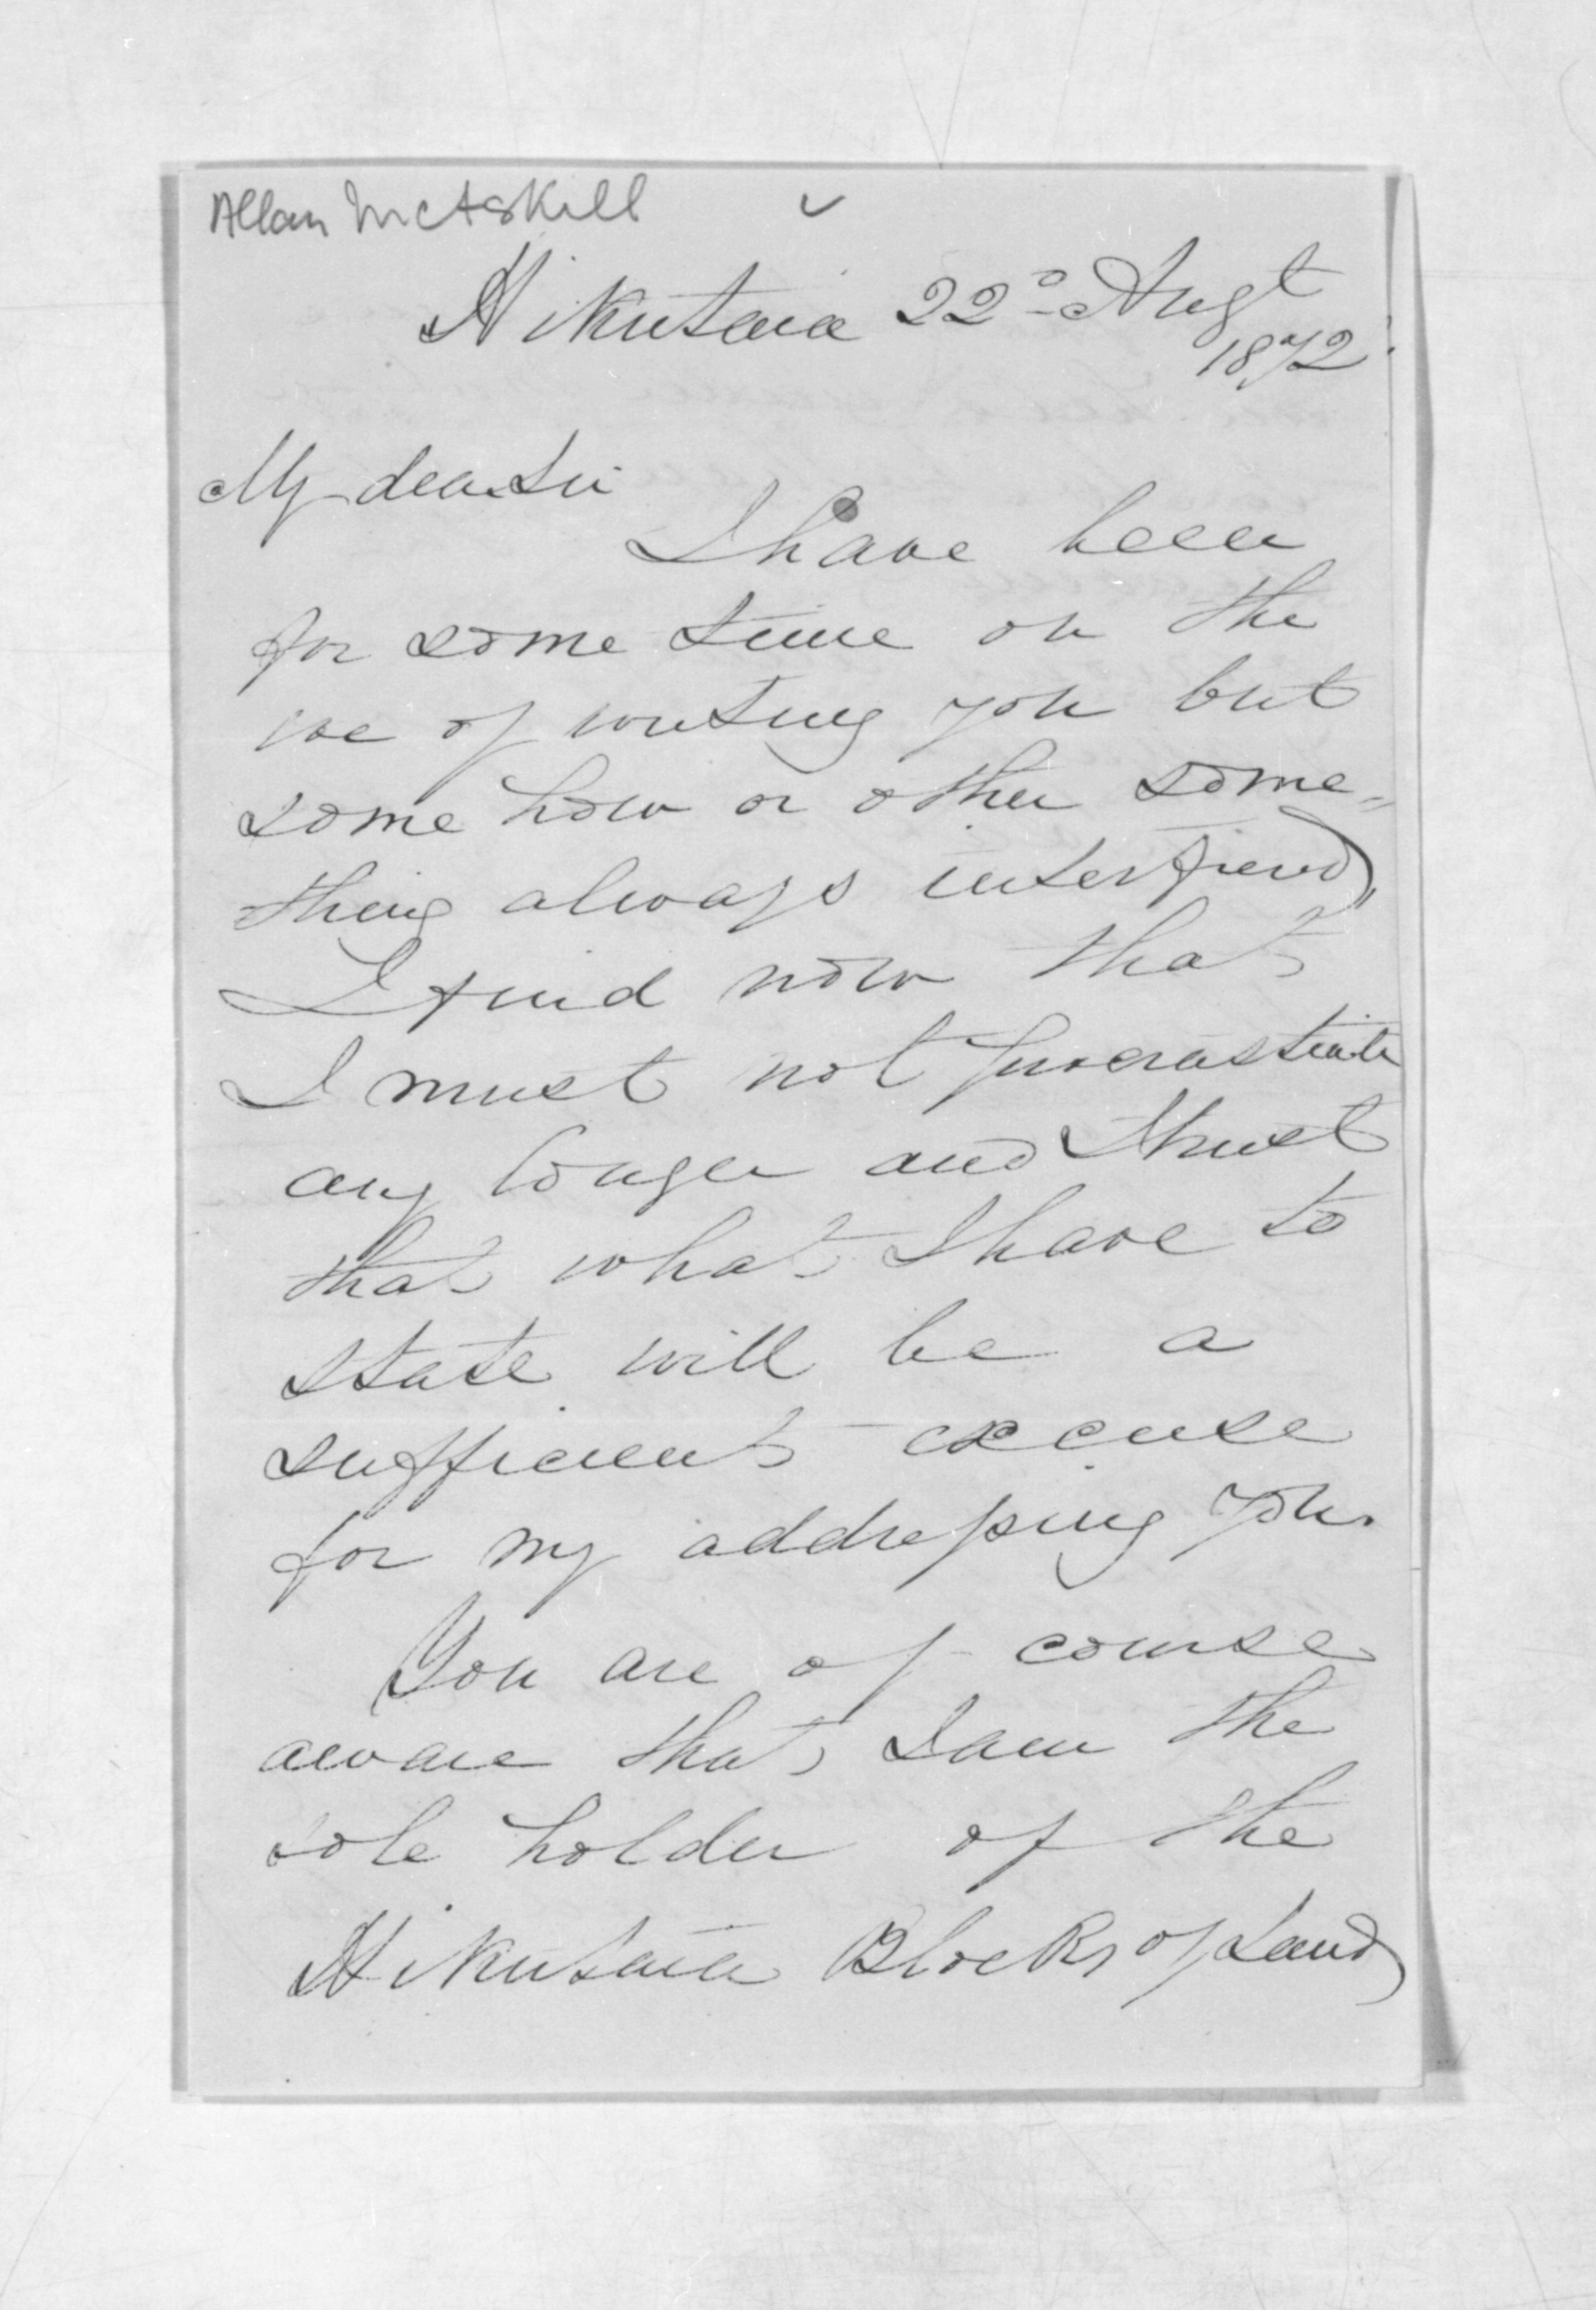 Allan McAskill
Hikutaia 22d Augt
1872
My dear Sir
I have been
for some time on the
of writing you but
some how or other some-
thing always interfered,
I find now that
I must not procrastinate
any longer and trust
that what I have to
state will be a
sufficient excuse
for my addressing you.
You are of course
aware that I am the
sole holder of the
Hikutaia Blocks of Land